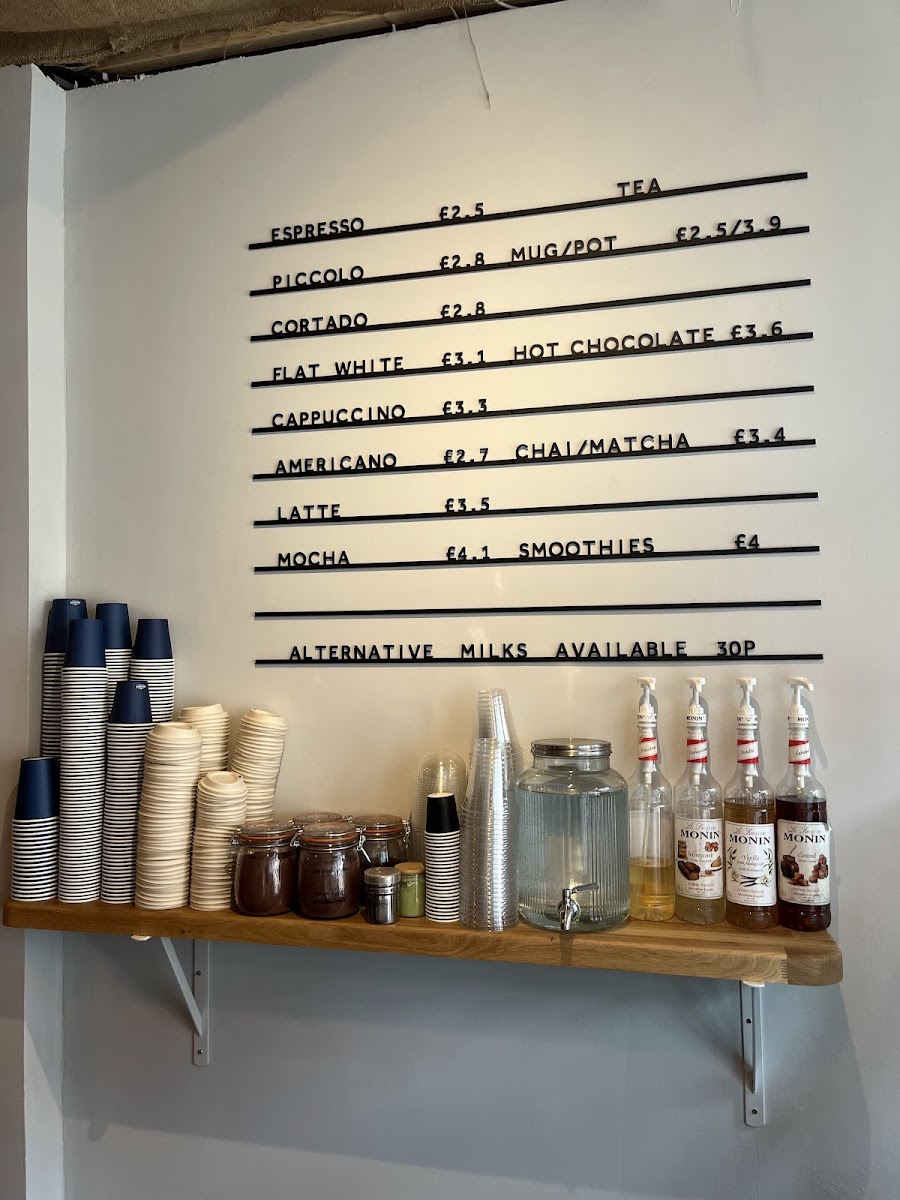 TEA
ESPRESSO £2.5
PICCOLO £2.8 MUG/POT £2.5/3.9
CORTADO £2.8
FLAT WHITE £3.1 HOT CHOCOLATE £3.6
CAPPUCCINO £3.3
AMERICANO £2.7 CHAI/MATCHA £3.4
LATTE £3.5
MOCHA £4.1 SMOOTHIES £4
ALTERNATIVE MILKS AVAILABLE 30P
MONIN
MONIN
Vanilla
MONIN
Caramel